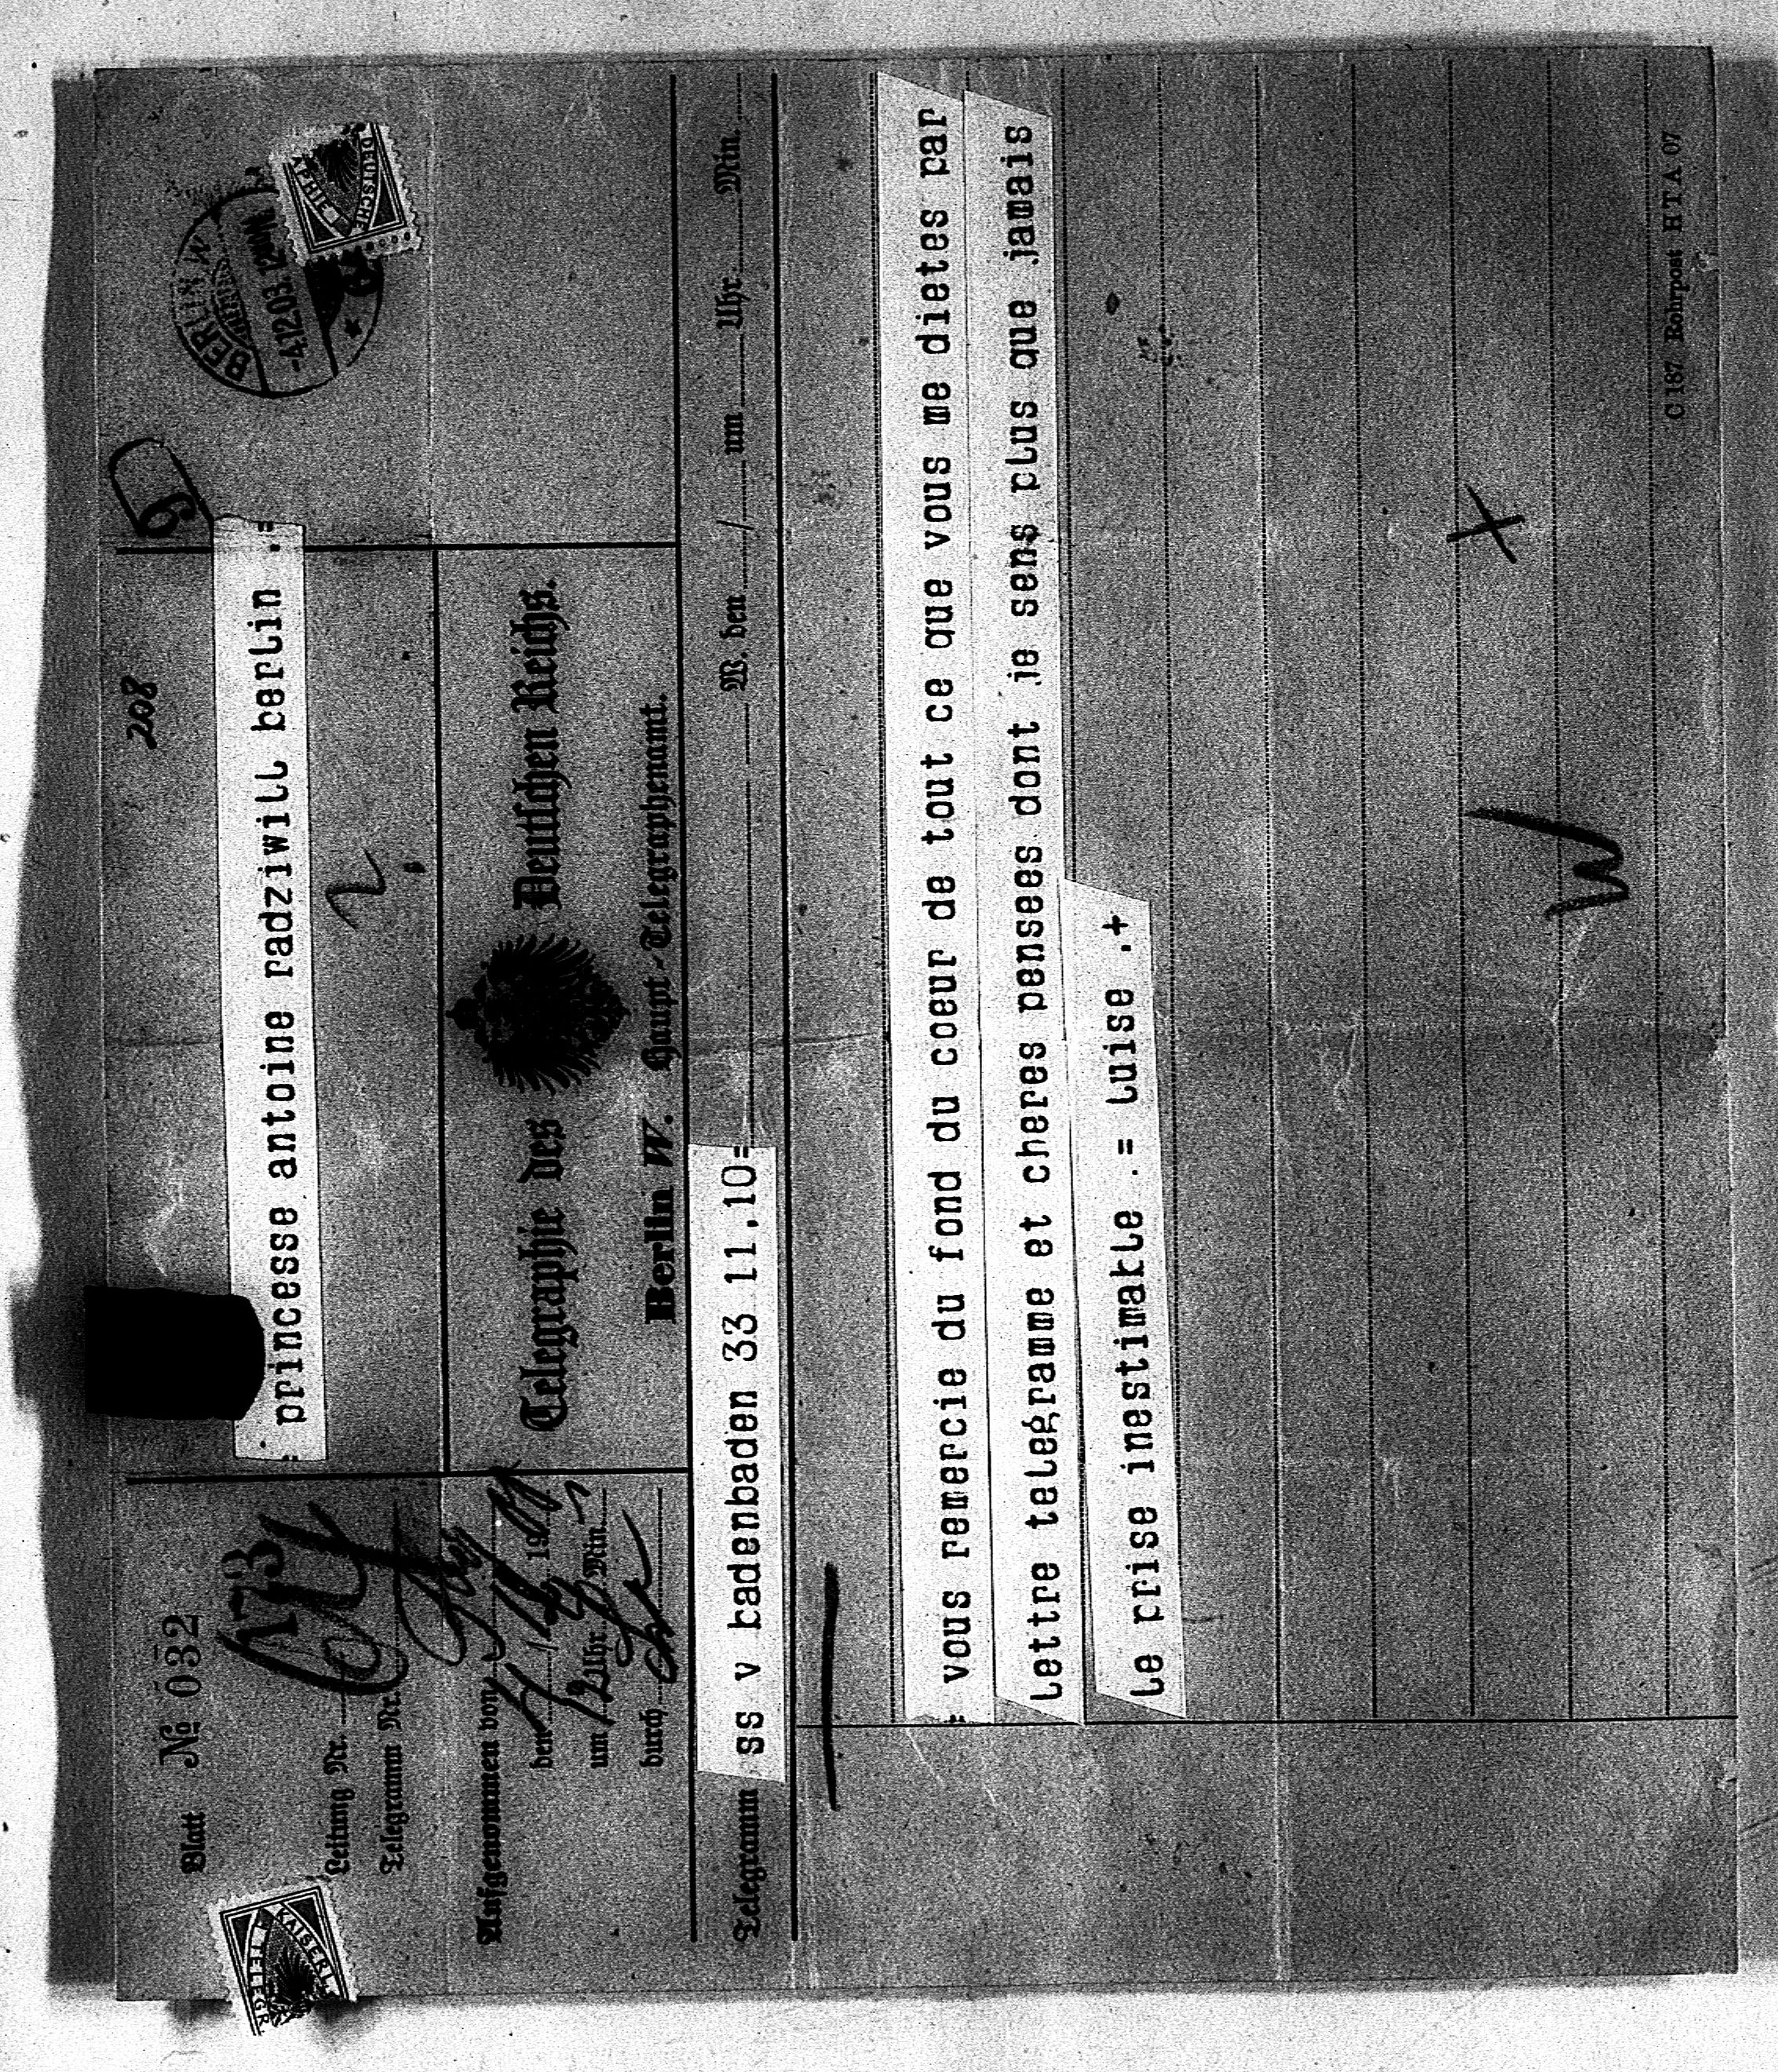 208
Blatt № 032
= princesse antoine radziwill berlin .=
Leitung Nr.
Telegramm Nr.
Telegraphie des Deutschen Reichs.
Berlin W. Haupt-Telegraphenamt.
Aufgenommen von
den 4/12 19
um 12 Uhr Min.
durch
BERLIN W
-4.12.03.12
DEUTSCHE
KAISERL.
TELEGR.
Telegramm ss v badenbaden 33 11.10= W. den / um Uhr Min.
= vous remercie du fond du coeur de tout ce que vous me dietes par
lettre telegramme et cheres pensees dont je sens plus que jamais
le prise inestimakle .= luise .+
C 187 Rohrpost H T A 07